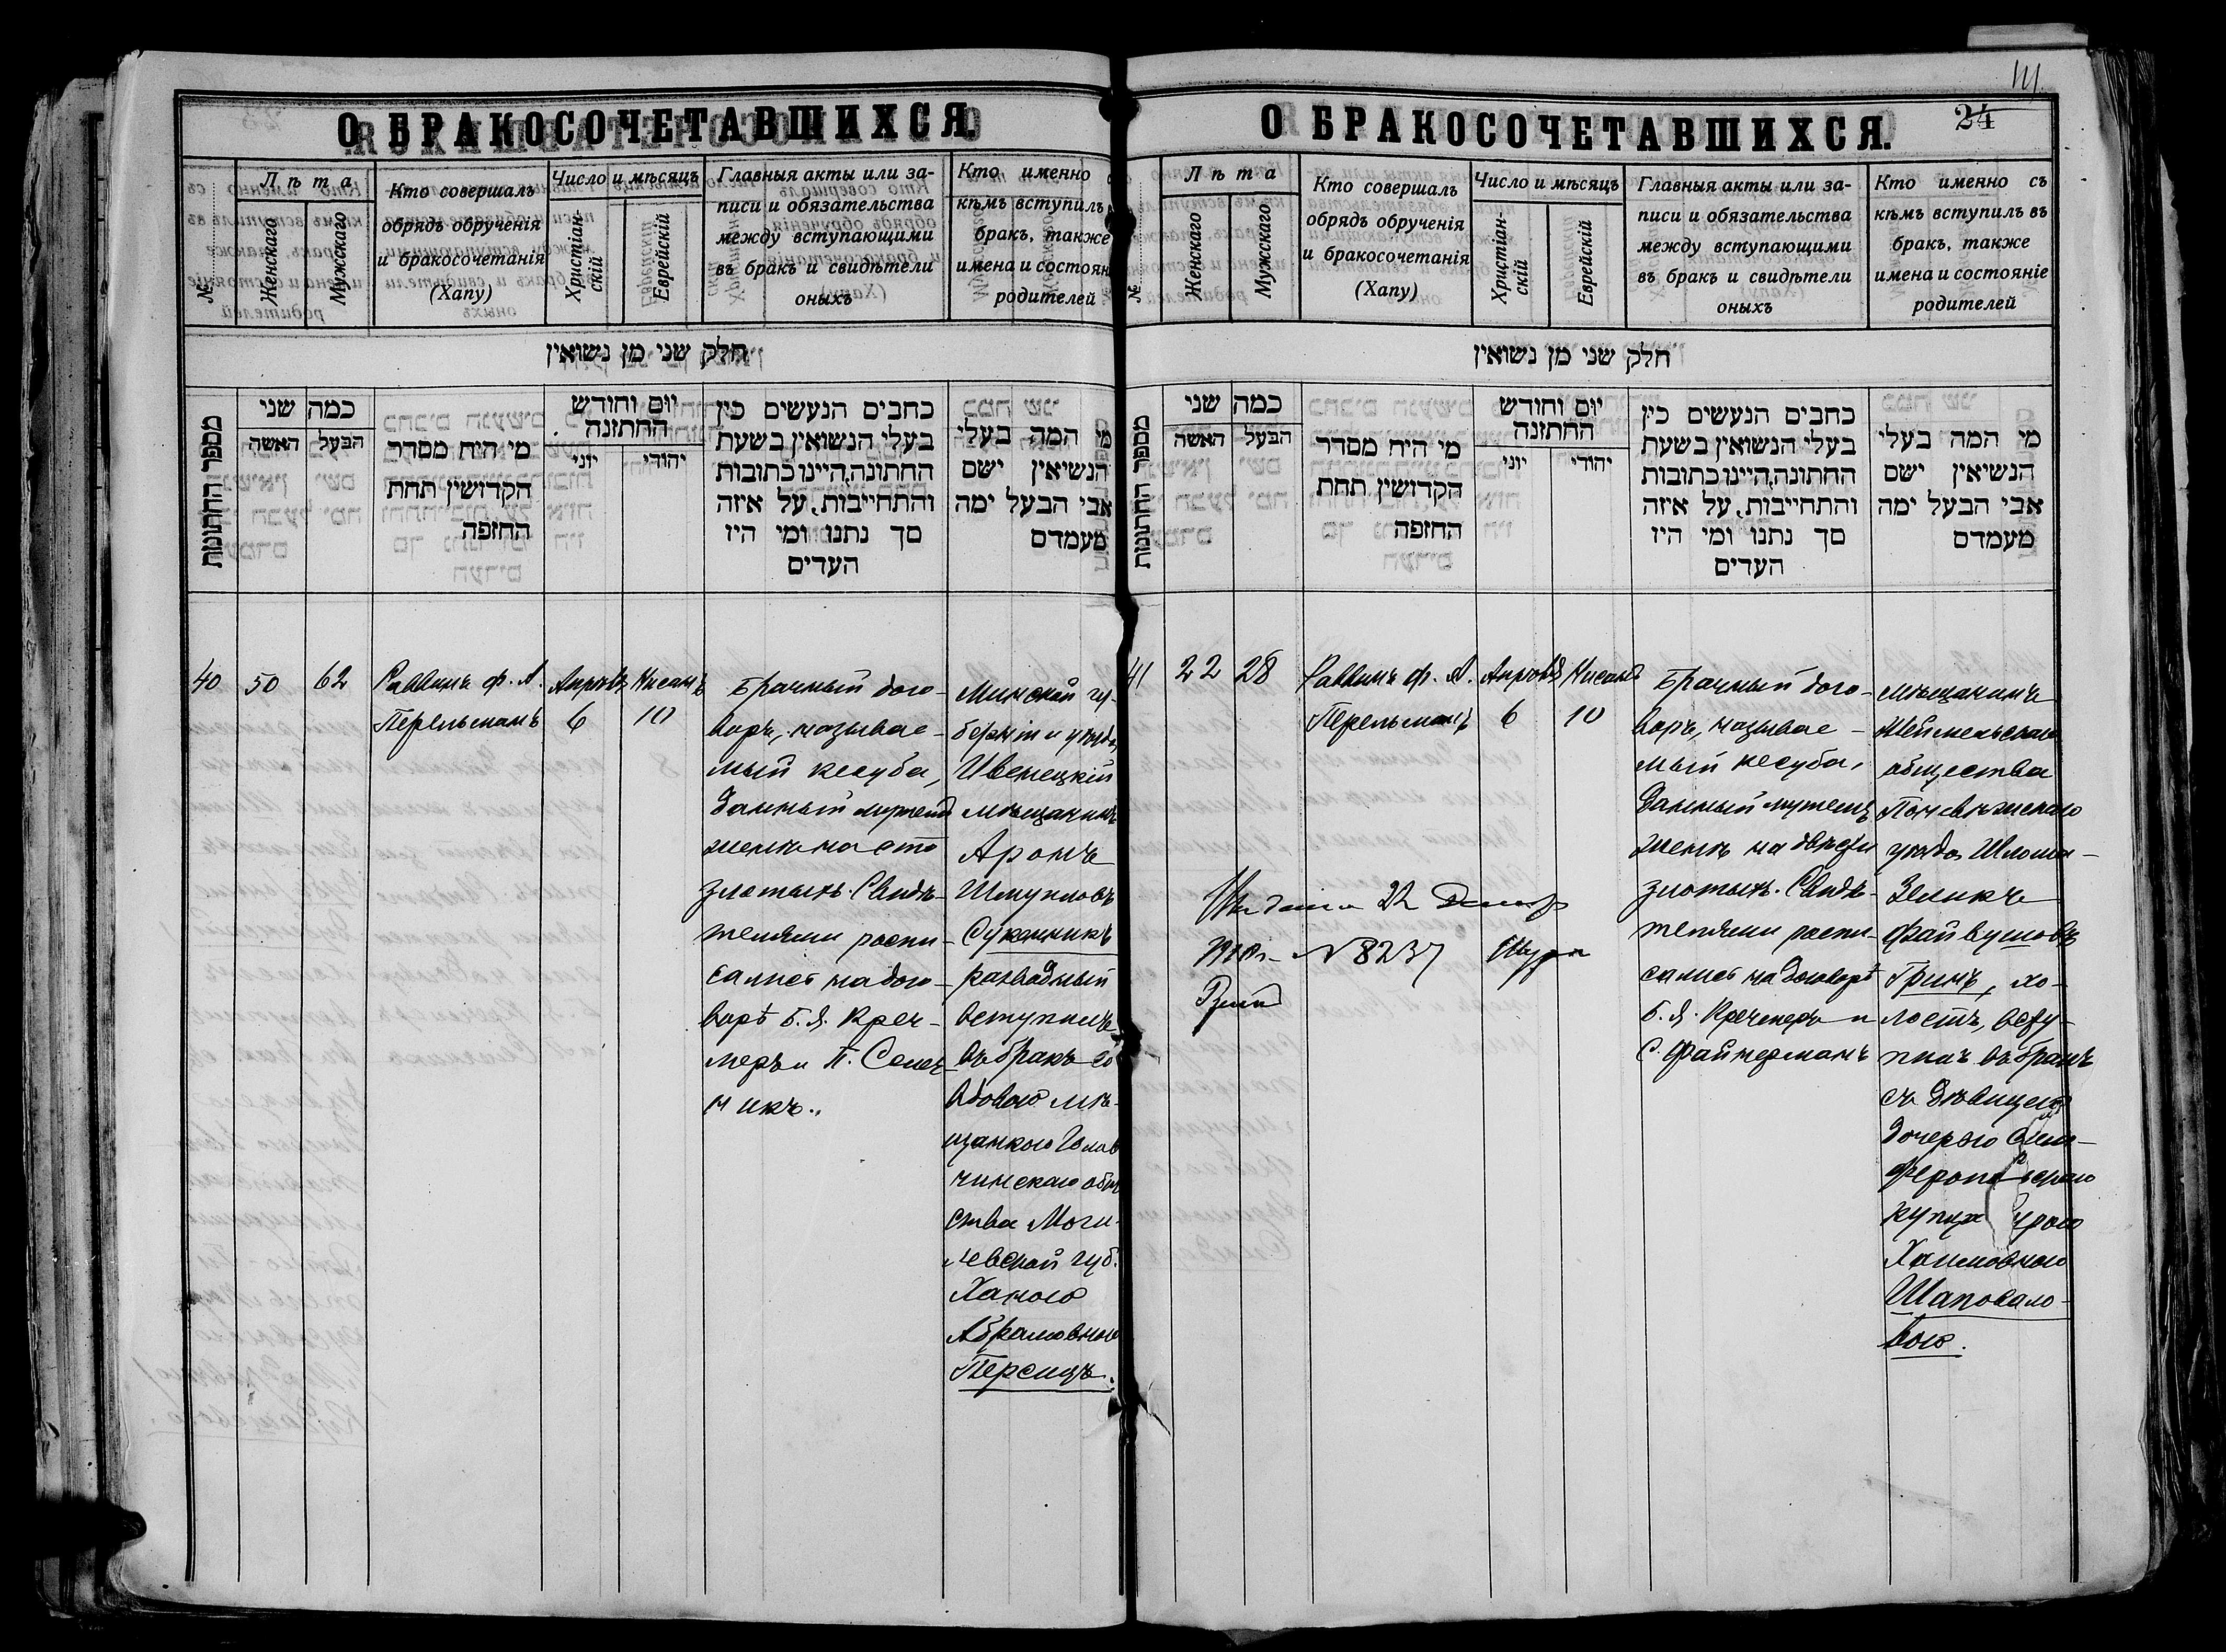 О БРАКОСОЧЕТАВШИХСЯ.
№
Лѣта
Женскаго
Мужскаго
Кто совершалъ
обрядъ обрученія
и бракосочетанія
(Хапу)
Число и мѣсяцъ
Христіан-
скій
Еврейскій
Главныя акты или за-
писи и обязательства
между вступающими
въ бракъ и свидѣтели
оныхъ
Кто именно
кѣмъ вступилъ
бракъ, также
имена и состоян
родителей
חלק שני מן נשואין
מספר החתונות
כמה שני
האשה
הבעל
מי היח מסדר
הקדושין תחת
החופה
יום וחודש
החתונה
יוני
יהודי
כחבים הנעשים כין
בעלי הנשואין בשעת
החתונה, היינו כתובות
והתחייבות, על איזה
סך נתנו ומי היו
העדים
מי המה בעלי
הנשיאין ישם
אבי הבעל ימה
מעמדם
40
50
62
Раввинъ ф. А.
Перельманъ
Апрѣль
6
Нисанъ
10
Брачный дого-
воръ, называе-
мый кесуба,
данный мужемъ
женѣ на сто
злотыхъ. Свидѣ-
телями распи-
сались на дого-
ворѣ Б. Я. Креч-
меръ и П. Солеч-
никъ.
Минской гу-
берніи и уѣзда,
Ивенецкій
мѣщанинъ
Аронъ
Шмуиловъ
Сукенникъ
разводный
вступилъ
въ бракъ со
вдовою мѣ-
щанкою Голов
чинскаго общ
ства Моги-
левской губ.
Ханою
Абрамовною
Персицъ.
111.
24
О БРАКОСОЧЕТАВШИХСЯ.
№
Лѣта
Женскаго
Мужскаго
Кто совершалъ
обрядъ обрученія
и бракосочетанія
(Хапу)
Число и мѣсяцъ
Христіан-
скій
Еврейскій
Главныя акты или за-
писи и обязательства
между вступающими
въ бракъ и свидѣтели
оныхъ
Кто именно съ
кѣмъ вступилъ въ
бракъ, также
имена и состояніе
родителей
חלק שני מן נשואין
מספר החתונות
כמה שני
האשה
הבעל
מי היח מסדר
הקדושין תחת
החופה
יום וחודש
החתונה
יוני
יהודי
כחבים הנעשים כין
בעלי הנשואין בשעת
החתונה, היינו כתובות
והתחייבות, על איזה
סך נתנו ומי היו
העדים
מי המה בעלי
הנשיאין ישם
אבי הבעל ימה
מעמדם
41
22
28
Раввинъ ф. А.
Перельманъ
Апрѣль
6
Нисанъ
10
22
№ 8237
Брачный дого-
воръ, называе-
мый кесуба,
данный мужемъ
женѣ на двѣсти
злотыхъ. Свидѣ-
телями распи-
сались на договорѣ
Б. Я. Кречмеръ и
С. Файнерманъ
мѣщанинъ
Жеймельскаго
общества
Поневѣжскаго
уѣзда Шлома-
Зеликъ
Файвушовъ
Гринъ, хо-
лостъ, всту-
пилъ въ бракъ
съ дѣвицею
дочерью Сим-
феропольскаго
купца
Хаимовною
Шаповало-
вою.